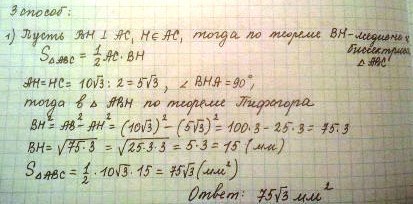 3 способ:
1) Пусть BH ⊥ AC, H ∈ AC, тогда по теореме BH-медиана и биссектриса △ABC
S△ABC = 1/2 AC · BH
AH = HC = 10√3 : 2 = 5√3, ∠BHA = 90°,
тогда в △ ABH по теореме Пифагора
BH² = AB² - AH² = (10√3)² - (5√3)² = 100·3 - 25·3 = 75·3
BH = √75·3 = √25·3·3 = 5·3 = 15 (мм)
S△ABC = 1/2 · 10√3 · 15 = 75√3 (мм²)
Ответ: 75√3 мм²